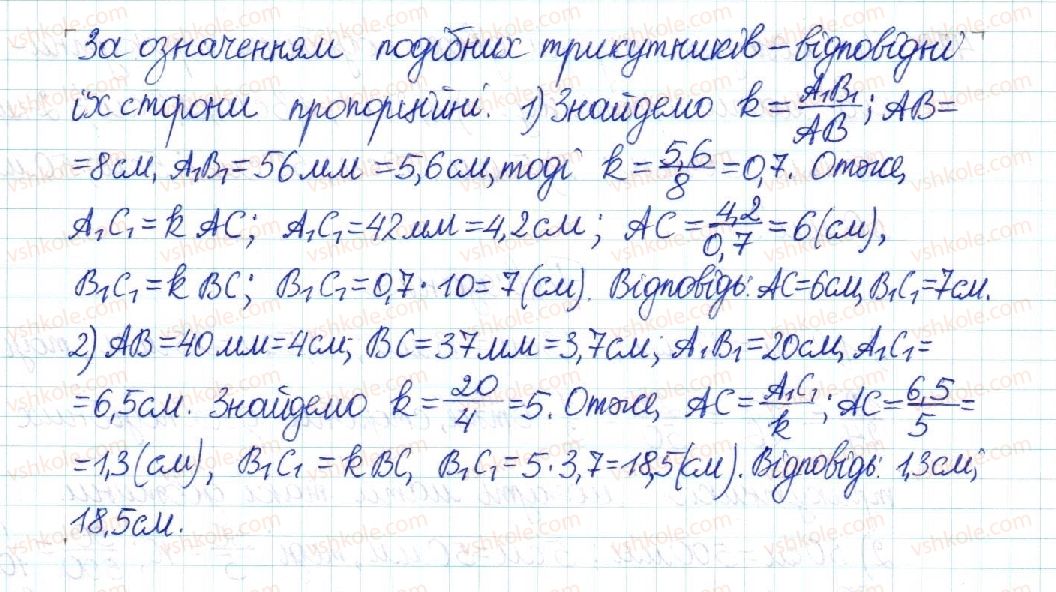 За означенням подібних трикутників – відповідні
їх сторони пропорційні. 1) Знайдемо k = A₁B₁/AB; AB =
= 8 см, A₁B₁ = 56 мм = 5,6 см, тоді k = 5,6/8 = 0,7. Отже,
A₁C₁ = k AC; A₁C₁ = 42 мм = 4,2 см; AC = 4,2/0,7 = 6 (см),
B₁C₁ = k BC; B₁C₁ = 0,7 · 10 = 7 (см). Відповідь: AC = 6 см, B₁C₁ = 7 см.
2) AB = 40 мм = 4 см; BC = 37 мм = 3,7 см; A₁B₁ = 20 см, A₁C₁ =
= 6,5 см. Знайдемо k = 20/4 = 5. Отже, AC = A₁C₁/k; AC = 6,5/5 =
= 1,3 (см), B₁C₁ = k BC, B₁C₁ = 5 · 3,7 = 18,5 (см). Відповідь: 1,3 см;
18,5 см.